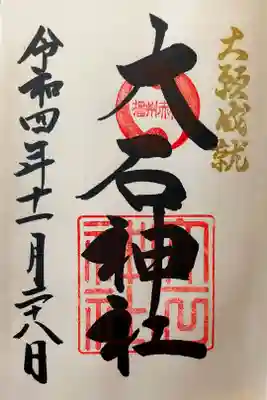 大願成就
播州赤
大石神社
令和四年十一月二十八日